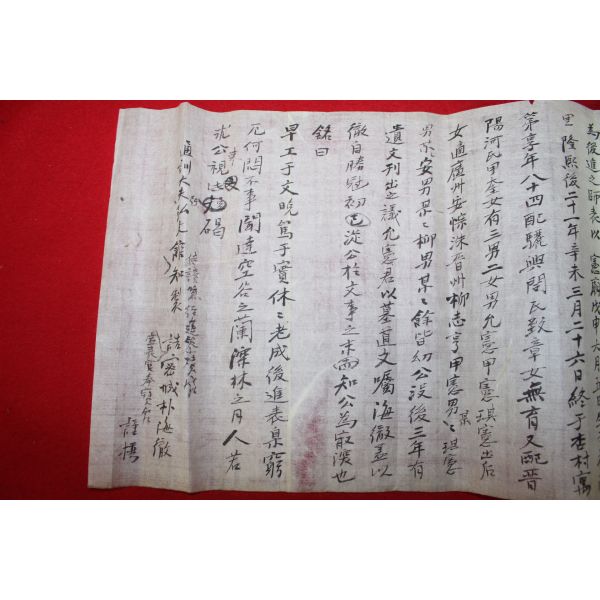 為後進之師表以 憲廟戊申六月五日生
里 隆熙後二十一年辛未三月二十六日終于杏村寓
第享年八十四配驪興閔氏致章女無育又配晋
陽河氏甲奎女有三男二女男允憲甲憲琪憲出后
女適廬州安㯖洙晋州柳志亨甲憲男某琪憲
男於安男某柳男某餘皆幼公没後三年有
遺文刊出之議允憲君以墓道文囑海徹盖以
徹自勝冠初已從公於文事之末而知公為最深也
銘曰
早工于文晩篤于實休休老成後進表臬窮
厄何問不事聞達空谷之蘭深林之月人若
求公視此碣
通訓大夫 館知製
誥密城朴海徹
謹撰